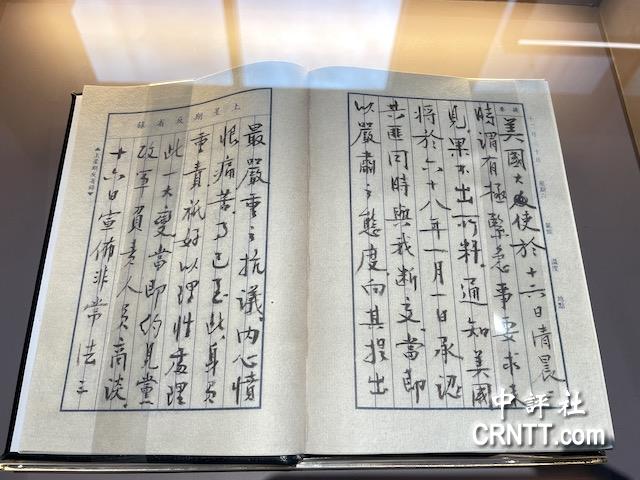 美國大使於十六日清晨
時謂有極緊急事要求
見果不出所料通知美國
將於六十八年一月一日承認
共匪同時與我斷交當即
以嚴肅之態度向其提出
上星期反省錄
最嚴重之抗議、內心憤
恨痛苦事已至此、身為
重責祇好以理性處理
此一大變當即約見黨
政軍負責人員商談、
十六日宣佈非常法三
上星期反省錄
溫度
地點
中評社
CRNTT.com